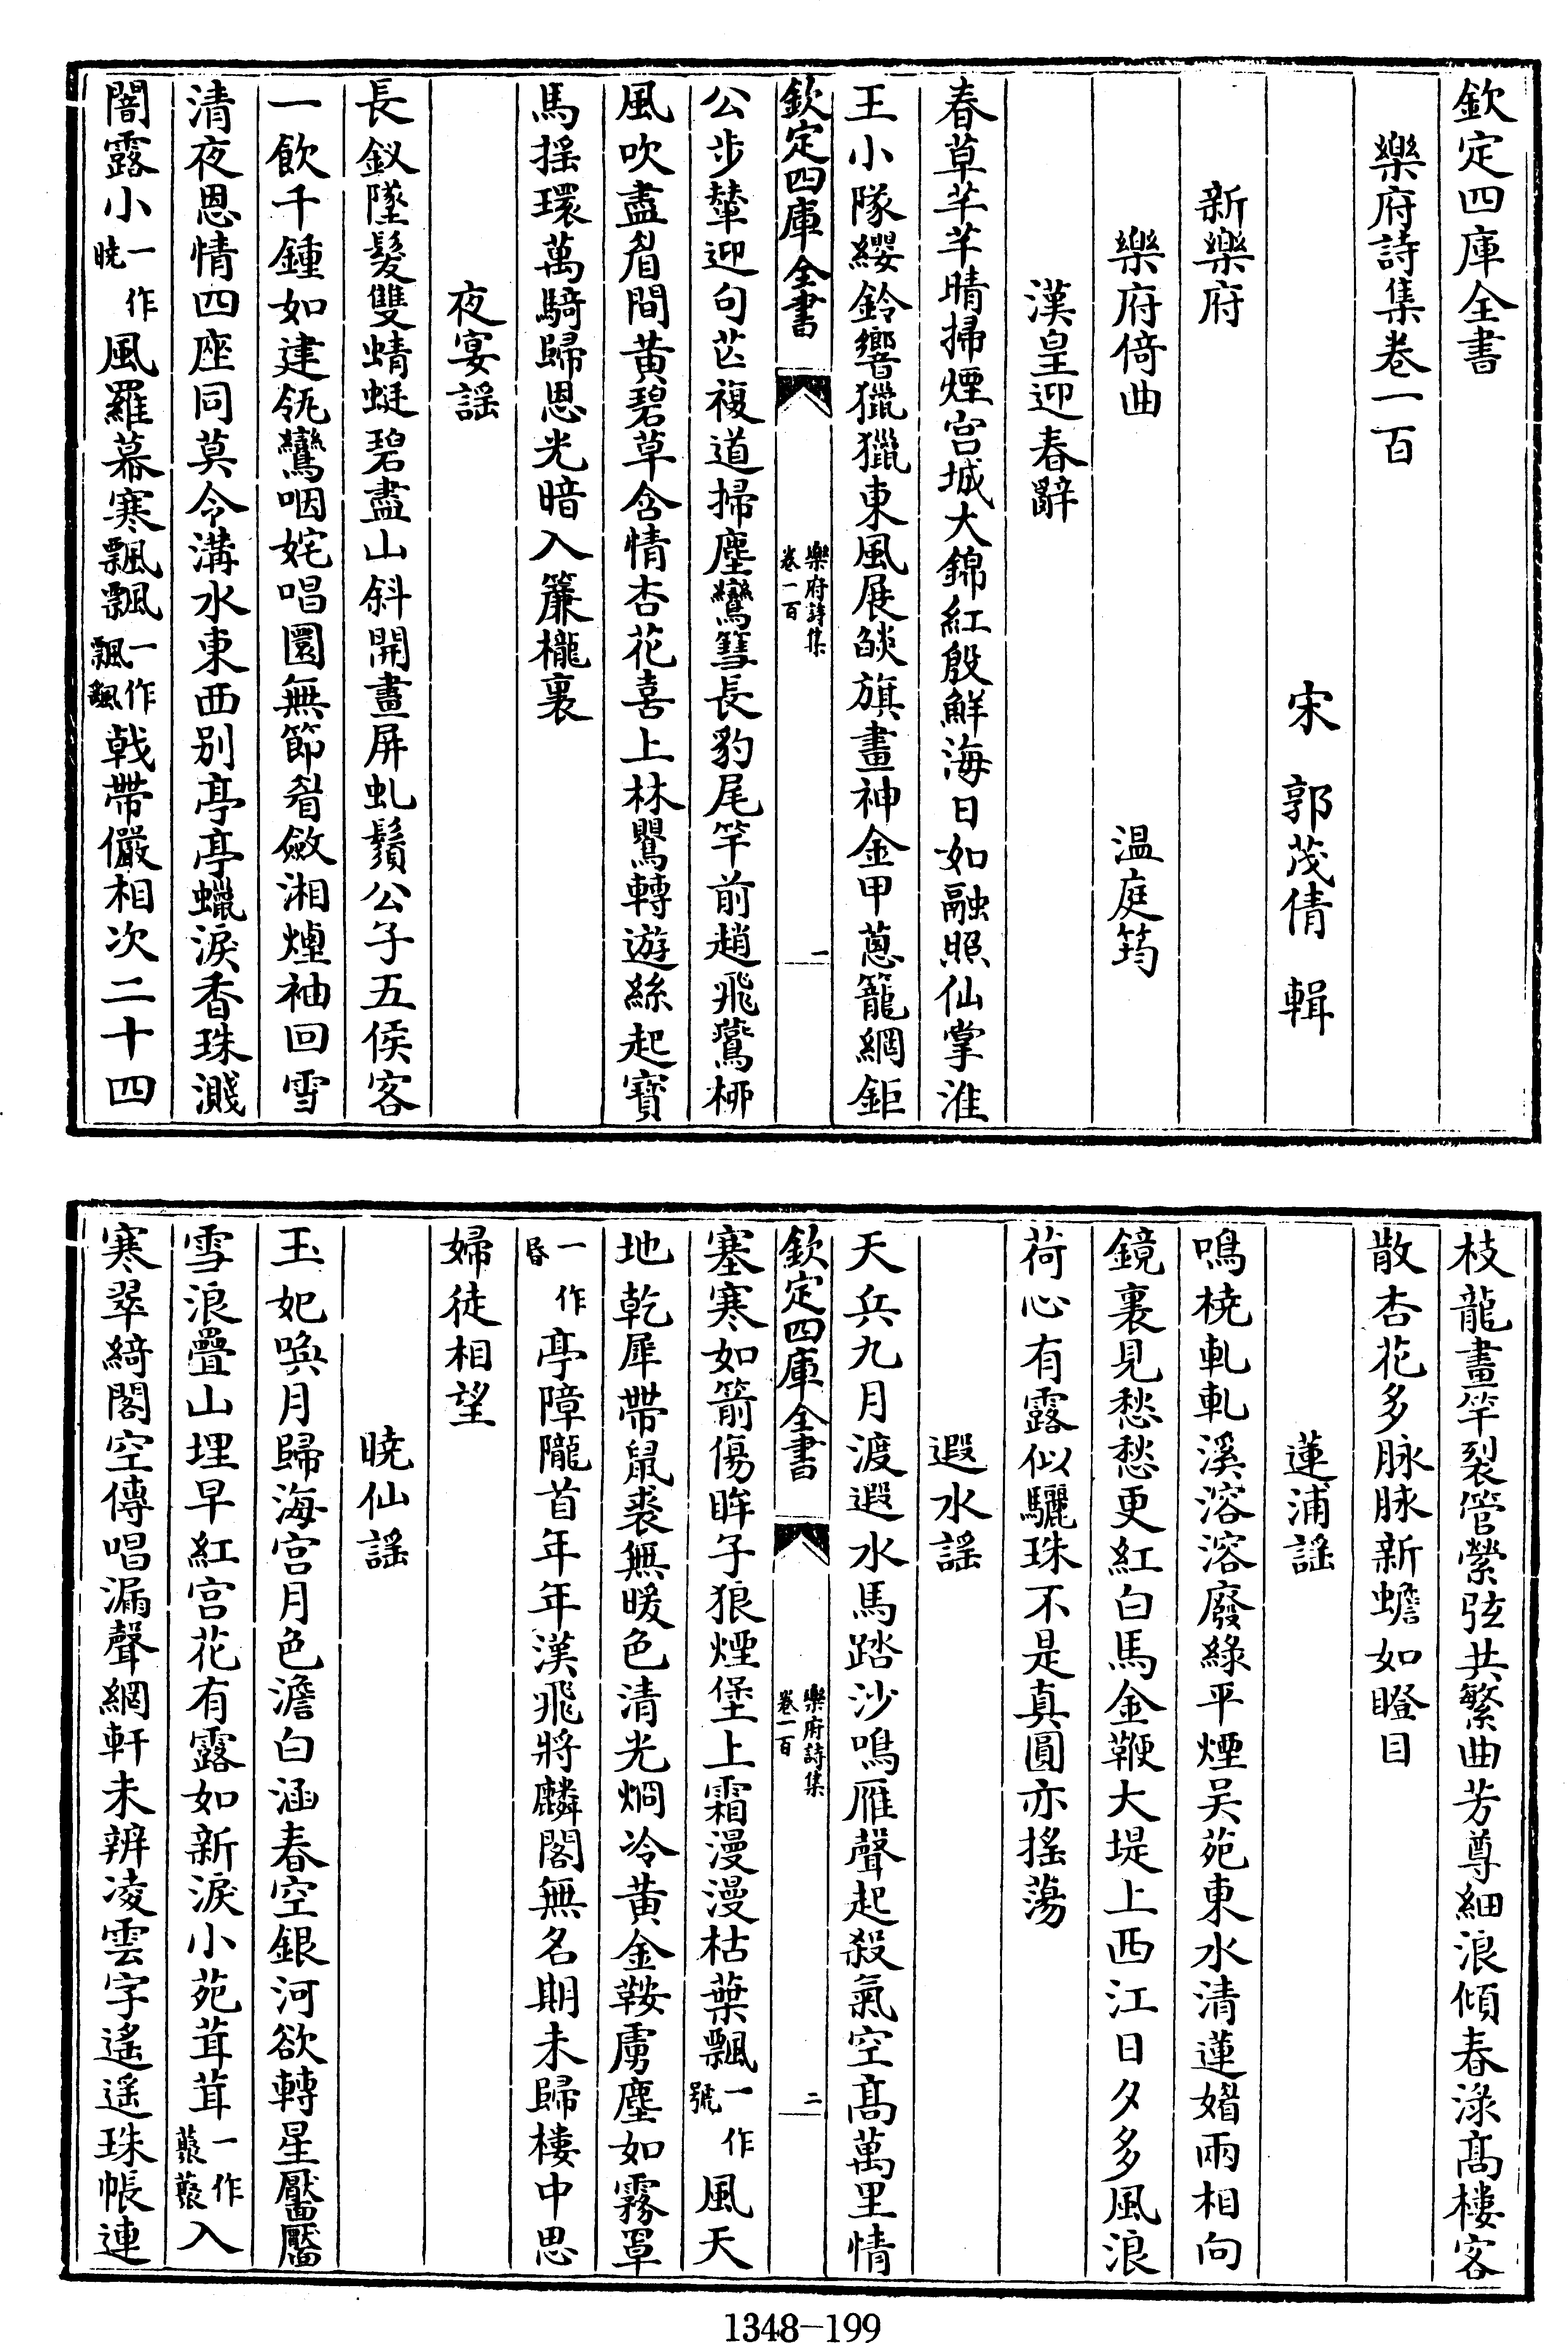 欽定四庫全書
樂府詩集卷一百
宋　郭茂倩　輯
新樂府
樂府倚曲　温庭筠
漢皇迎春辭
春草芊芊晴掃煙宫城大錦紅殷鮮海日如融照仙掌淮
王小隊纓鈴響獵獵東風展㷋旗畫神金甲蔥籠網鉅
欽定四庫全書　樂府詩集卷一百　一
公步輦迎句芒複道掃塵鸞篲長豹尾竿前趙飛鷰柳
風吹盡眉間黄碧草含情杏花喜上林鸎轉遊絲起寶
馬摇環萬騎歸恩光暗入簾櫳裏
夜宴謡
長釵墜髮雙蜻蜓碧盡山斜開畫屏虬鬚公子五侯客
一飲千鍾如建瓴鸞咽姹唱圓無節眉斂湘煙袖回雪
清夜恩情四座同莫令溝水東西别亭亭蠟淚香珠濺
闇露小一作曉風羅幕寒飄飄一作飄颻戟帶儼相次二十四
枝龍畫竿裂管縈弦共繁曲芳尊細浪傾春渌髙樓客
散杏花多脉脉新蟾如瞪目
蓮浦謡
鳴橈軋軋溪溶溶廢綠平煙吴苑東水清蓮媚兩相向
鏡裏見愁愁更紅白馬金鞭大堤上西江日夕多風浪
荷心有露似驪珠不是真圓亦摇蕩
遐水謡
天兵九月渡遐水馬踏沙鳴雁聲起殺氣空髙萬里情
欽定四庫全書　樂府詩集卷一百　二
塞寒如箭傷眸子狼煙堡上霜漫漫枯葉飄一作號風天
地乾犀帶鼠裘無暖色清光烱冷黄金鞍虜塵如霧罩
一作昏亭障隴首年年漢飛將麟閣無名期未歸樓中思
婦徒相望
曉仙謡
玉妃喚月歸海宫月色澹白涵春空銀河欲轉星靨靨
雪浪疊山埋早紅宫花有露如新淚小苑茸茸一作藂藂入
寒翠綺閣空傳唱漏聲網軒未辨凌雲字遙遥珠帳連
1348-199